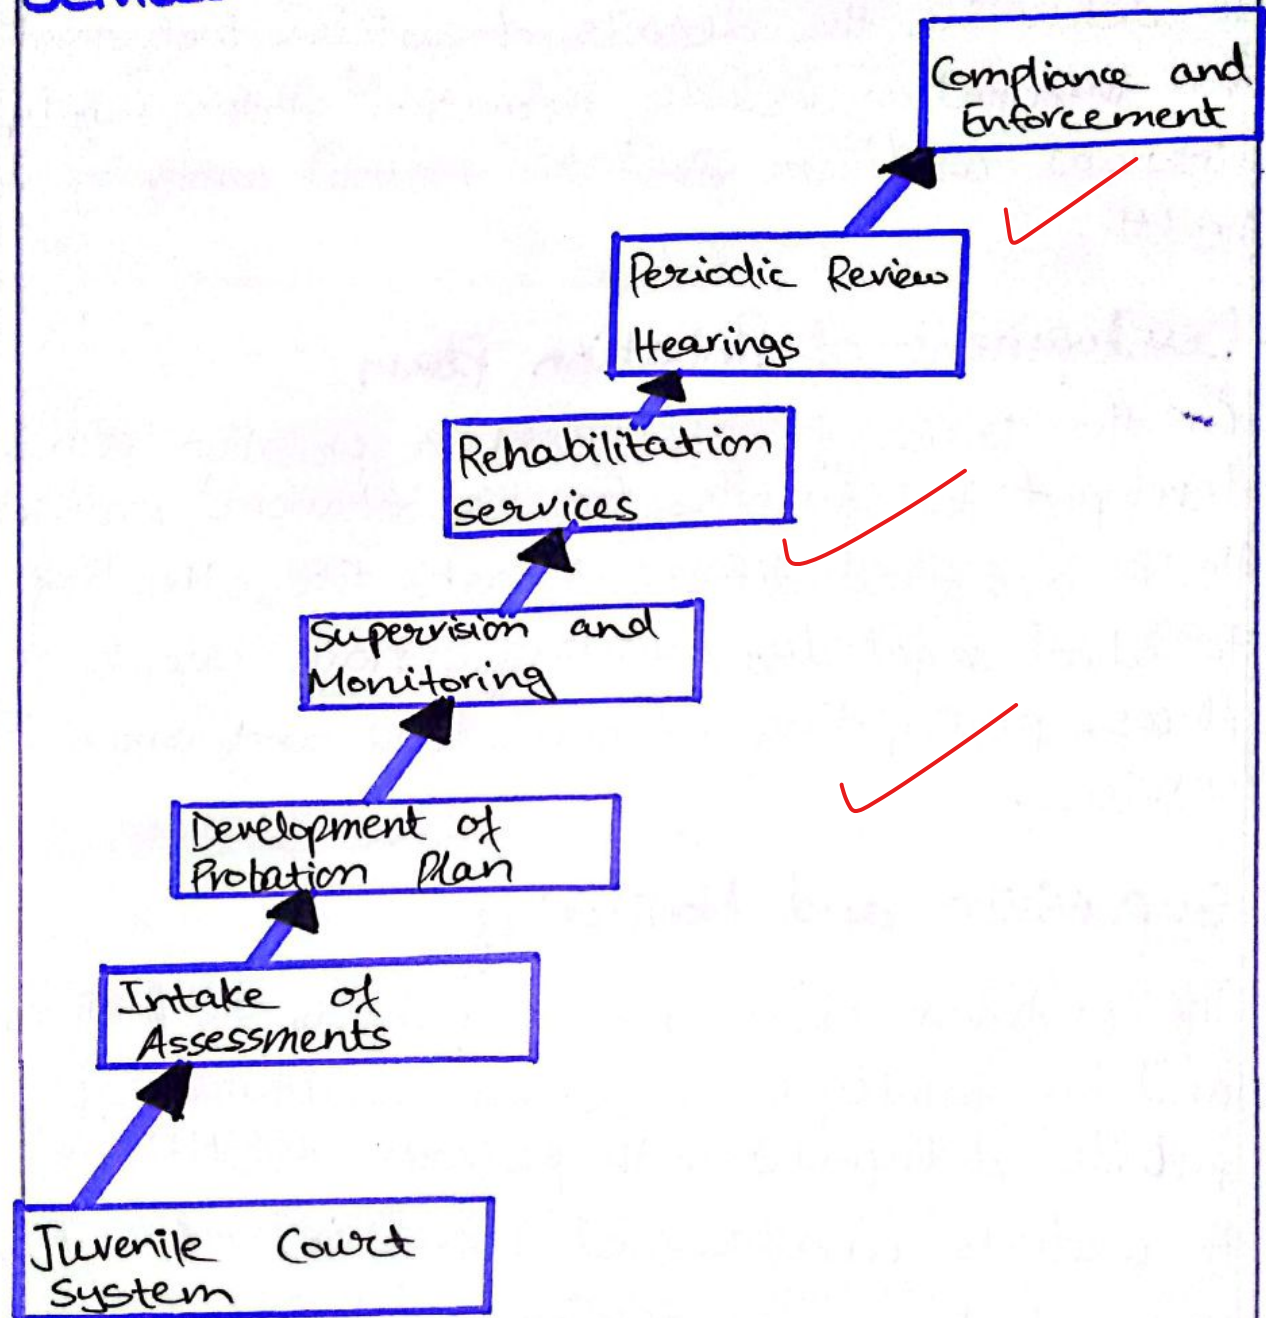 Compliance and
Enforcement
Periodic Review
Hearings
Rehabilitation
services
Supervision and
Monitoring
Development of
Probation Plan
Intake of
Assessments
Juvenile Court
System